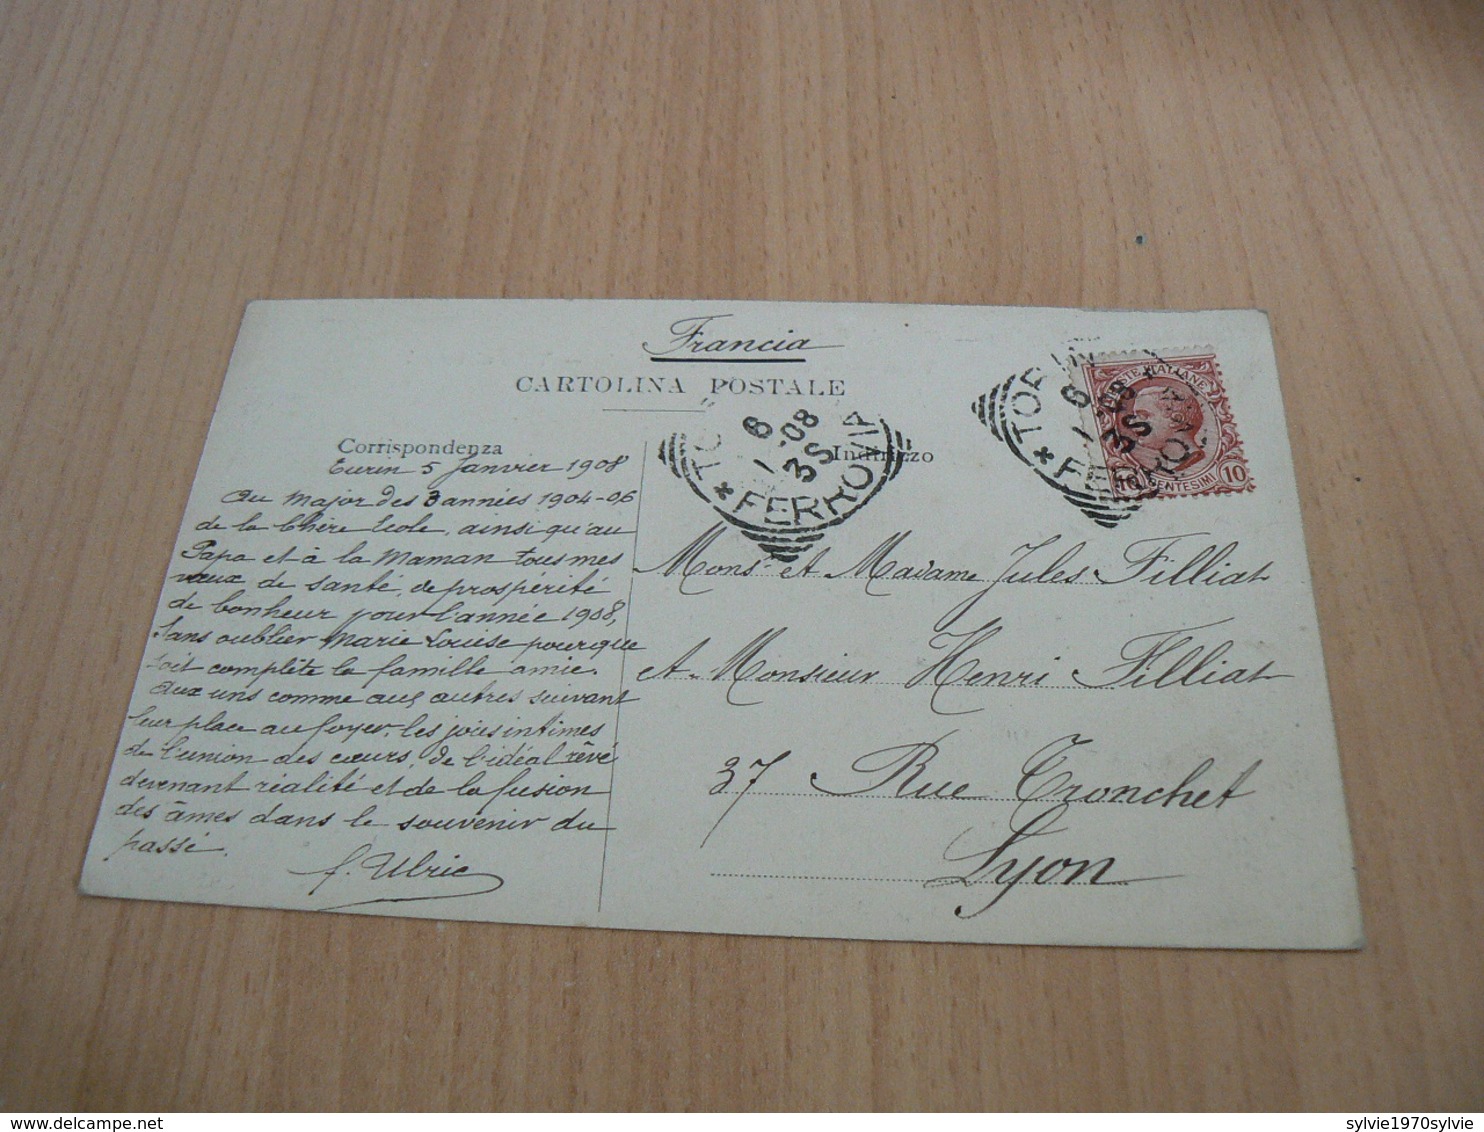 Francia
CARTOLINA POSTALE
Corrispondenza
Turin 5 Janvier 1908
Au Major des 3 années 1904-06
de la Chère Ecole, ainsi qu'au
Papa et à la Maman tous mes
vœux de santé, de prospérité
de bonheur pour l'année 1908,
Sans oublier Marie Louise pourque
soit complète la famille amie.
Aux uns comme aux autres suivant
leur place au foyer, les joies intimes
de l'union des cœurs, de l'idéal rêvé
devenant réalité et de la fusion
des âmes dans le souvenir du
passé.
f. Ulric
Indirizzo
6
1 -08
3S
* FERROVIA
TOR
6
1 -08
3S
* FERROVIA
POSTE ITALIANE
10 CENTESIMI 10
Mons.r et Madame Jules Filliat
et Monsieur Henri Filliat
37 Rue Tronchet
Lyon
delcampe.net
sylvie1970sylvie